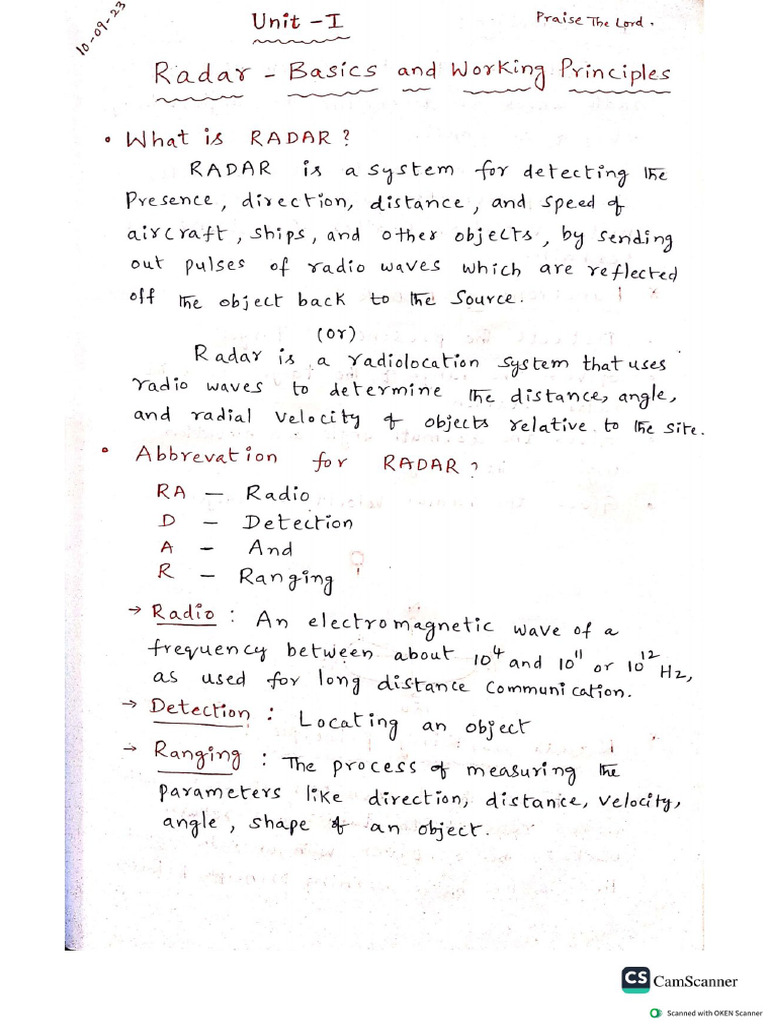 10-09-23
Unit - I
Praise The Lord.
Radar - Basics and Working Principles
• What is RADAR?
RADAR is a system for detecting the
Presence, direction, distance, and speed of
aircraft, ships, and other objects, by sending
out pulses of radio waves which are reflected
off the object back to the Source.
(or)
Radar is a radiolocation system that uses
radio waves to determine the distance, angle,
and radial velocity of objects relative to the site.
• Abbrevation for RADAR?
RA - Radio
D - Detection
A - And
R - Ranging
→ Radio : An electromagnetic wave of a
frequency between about 10⁴ and 10¹¹ or 10¹² Hz,
as used for long distance communication.
→ Detection : Locating an object
→ Ranging : The process of measuring the
parameters like direction, distance, velocity,
angle, shape of an object.
CS CamScanner
Scanned with OKEN Scanner